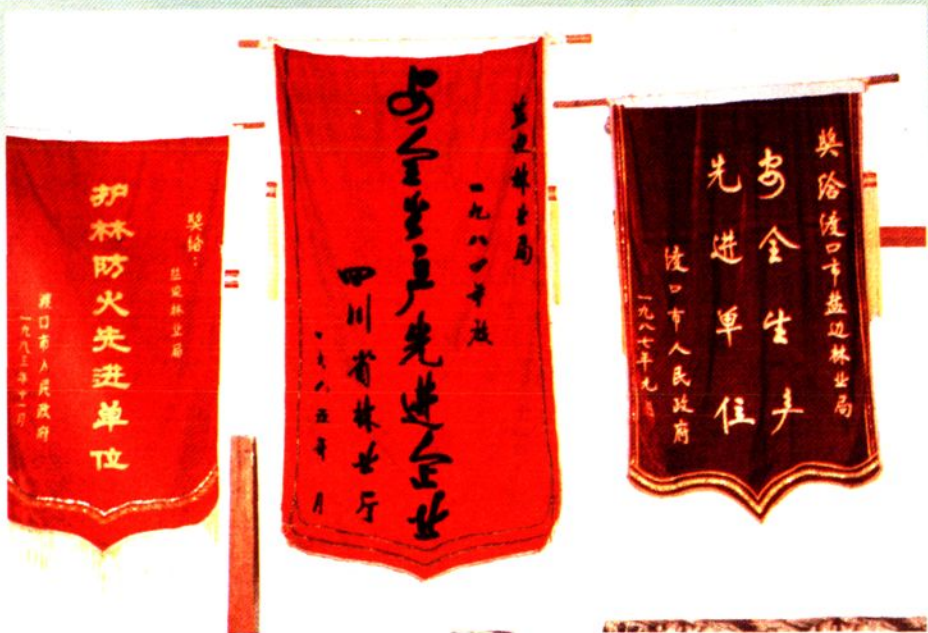 奖给:
盐边林业局
护林防火先进单位
渡口市人民政府
一九八三年十一月
盐边林业局
一九八一年度
安全生产先进企业
四川省林业厅
月
奖给渡口市盐边林业局
安全生产
先进单位
渡口市人民政府